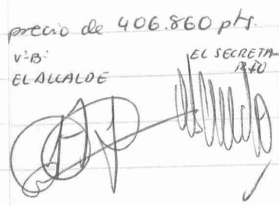 precio de 406.860 pts.
V:B:
EL ALCALDE
EL SECRETA-
RIO